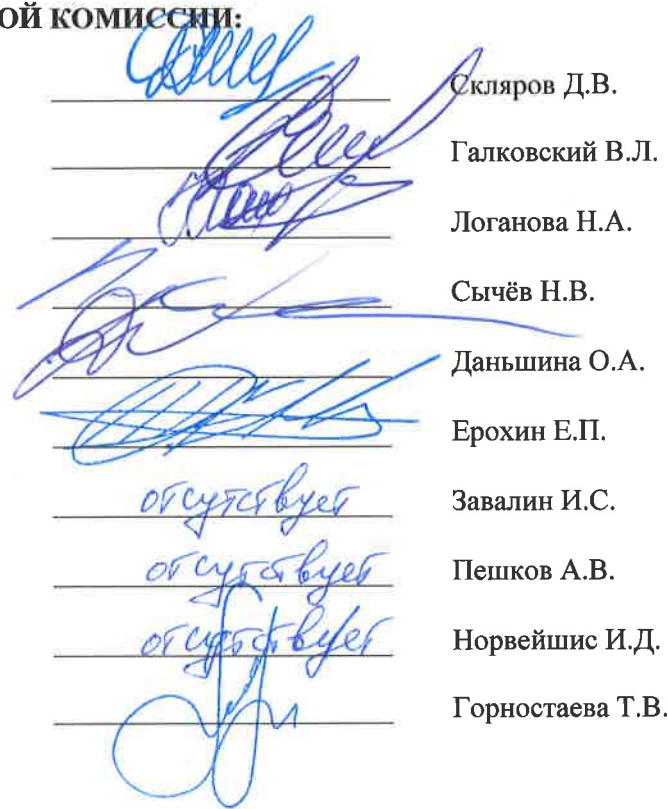 ОЙ КОМИССИИ:
Скляров Д.В.
Галковский В.Л.
Логанова Н.А.
Сычёв Н.В.
Даньшина О.А.
Ерохин Е.П.
отсутствует Завалин И.С.
отсутствует Пешков А.В.
отсутствует Норвейшис И.Д.
Горностаева Т.В.